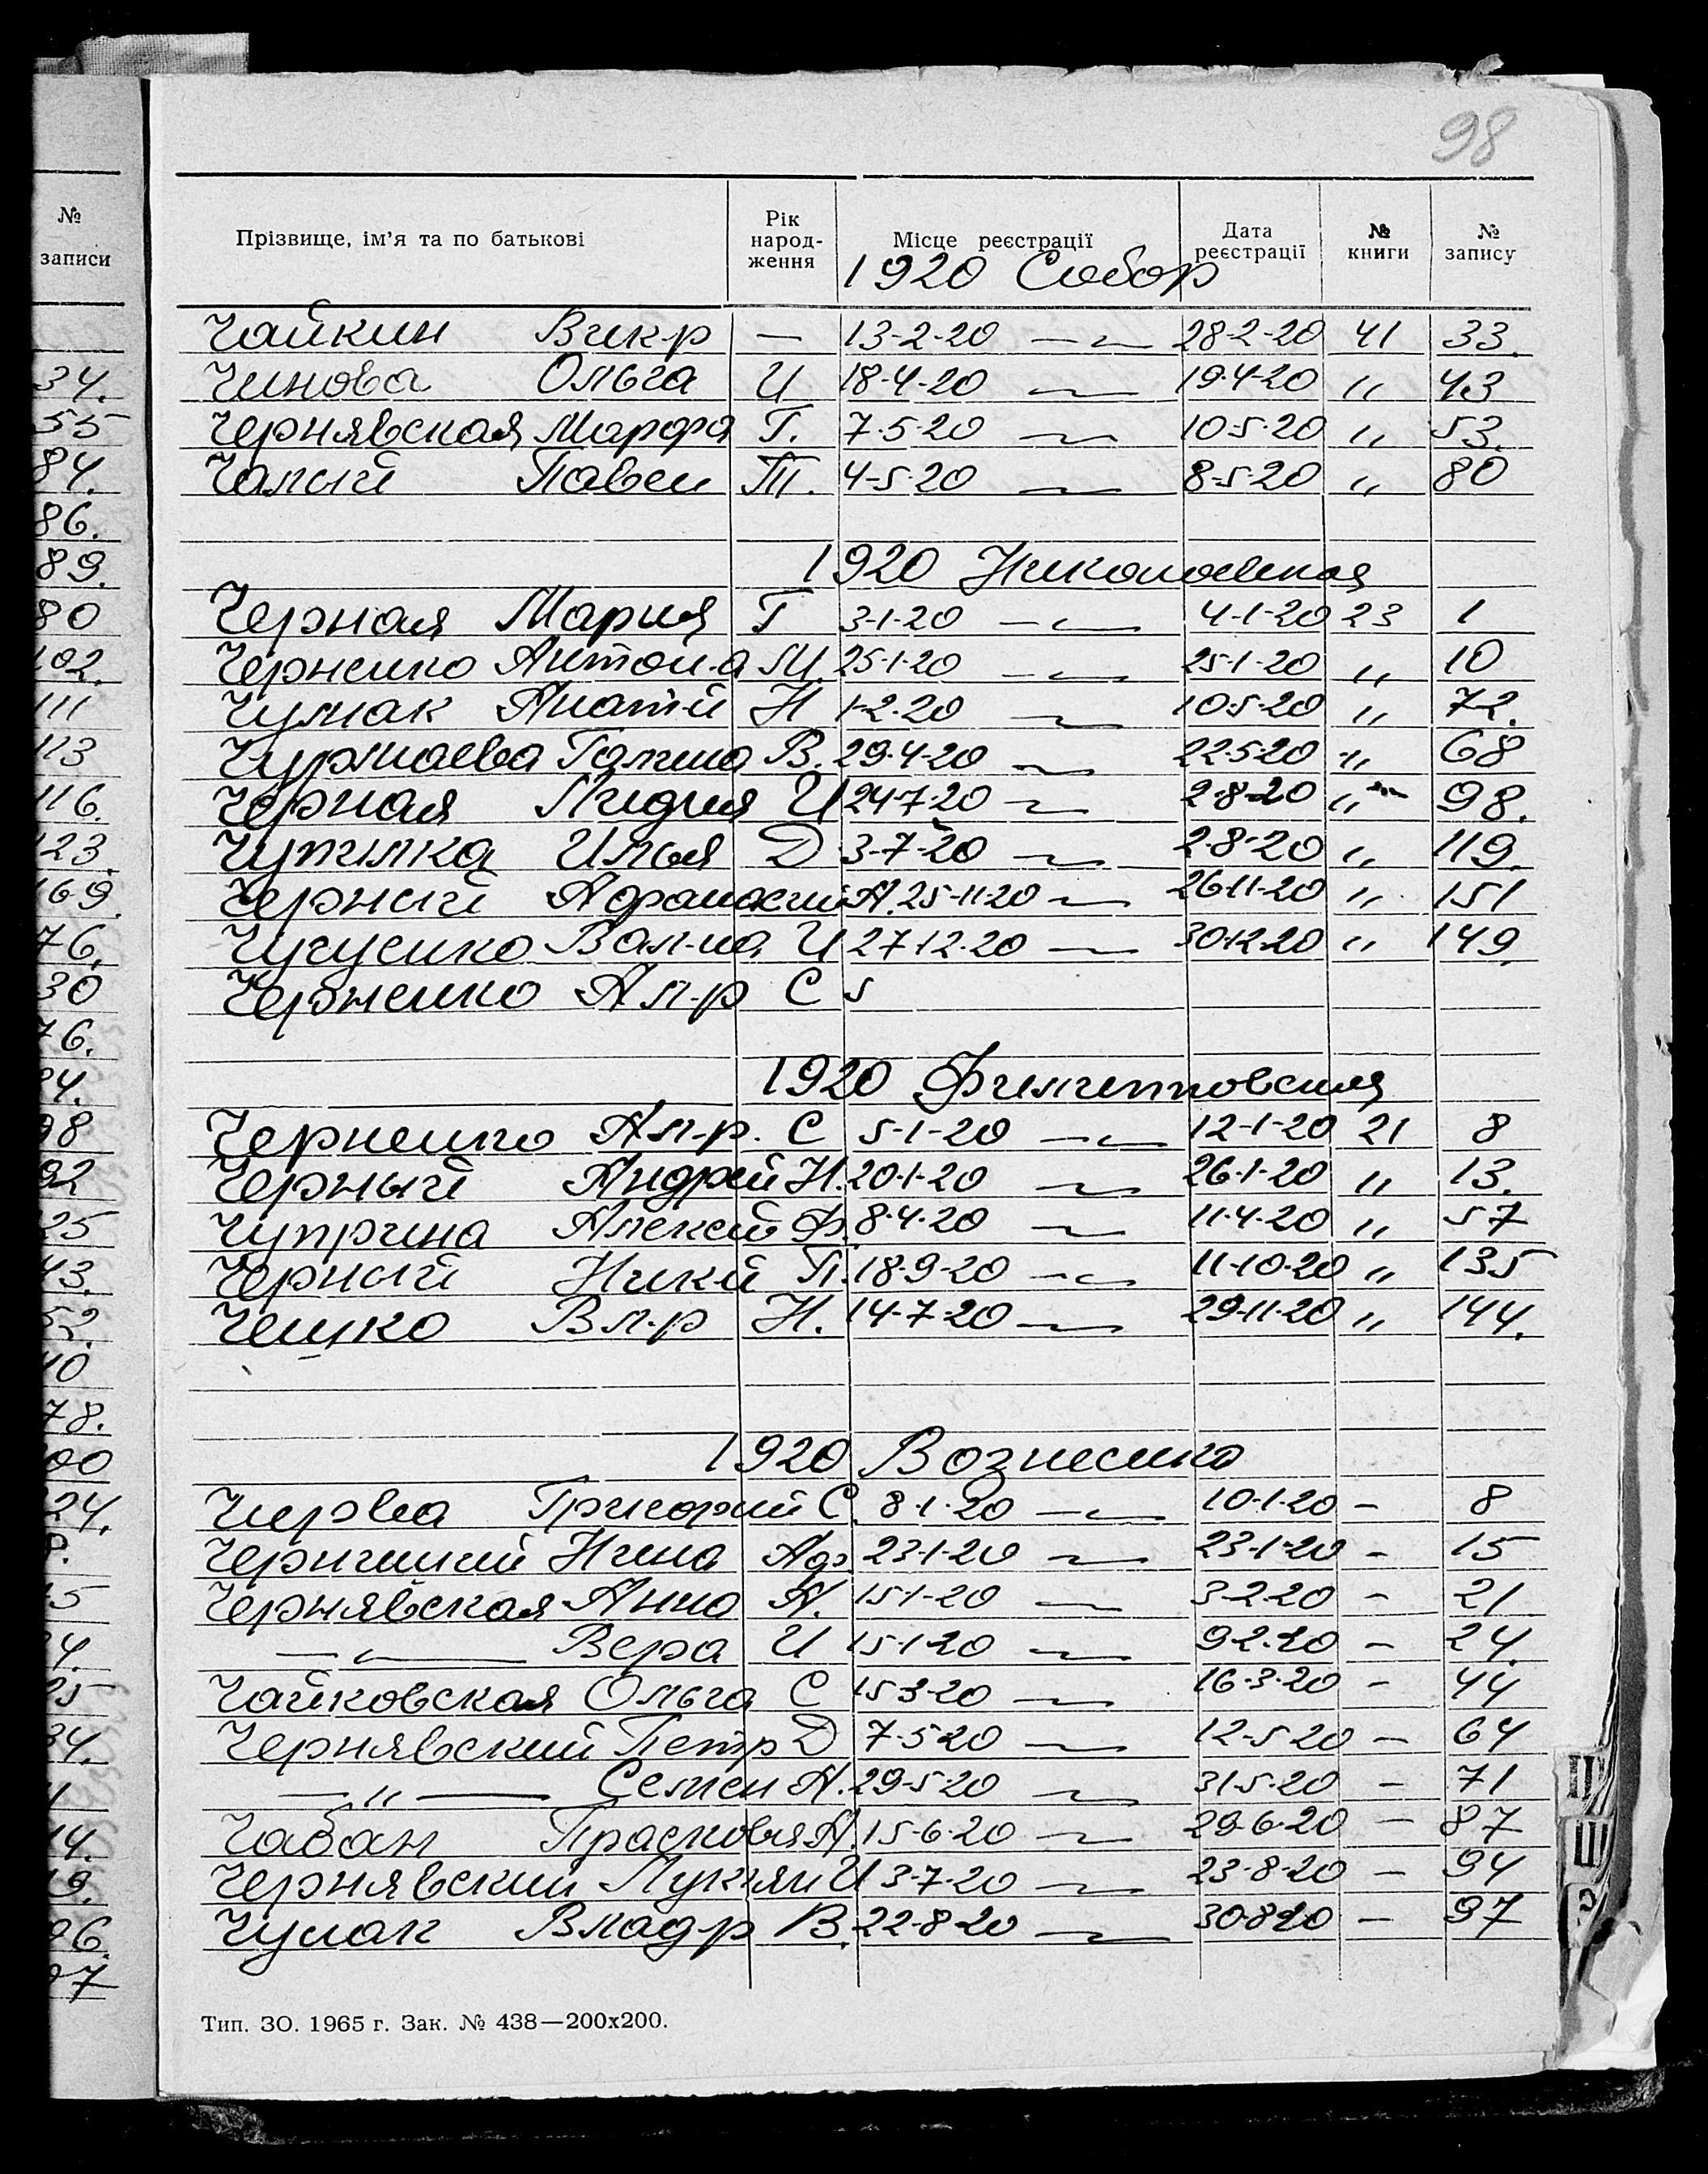 98
№ записи
Прізвище, ім'я та по батькові Рік народ-ження Місце реєстрації Дата реєстрації № книги № запису
1920 Собор
Чайкин Вик-р — 13-2-20 —〃— 28-2-20 41 33.
Чинова Ольга И 18-4-20 — 19-4-20 〃 43
Чернявская Марфа Г. 7-5-20 — 10-5-20 〃 53.
Чалый Павел Т. 4-5-20 — 8-5-20 〃 80
1920 Николаевская
Черная Мария Г 3-1-20 —〃— 4-1-20 23 1
Черненко Антон-а М. 25-1-20 —〃— 25-1-20 〃 10
Чумак Анат-й Н 1-2-20 — 10-5-20 〃 72.
Чурмаева Галина В. 29-4-20 — 22-5-20 〃 68
Черная Лидия И 24-7-20 — 2-8-20 〃 98.
Чупилка Илья Д 3-7-20 — 2-8-20 〃 119.
Черный Афанасий А. 25-11-20 — 26-11-20 〃 151
Чугуенко Вал-на И 27-12-20 — 30-12-20 〃 149.
Черненко Ал-р С 5
1920 Филипповская
Черненко Ал-р. С 5-1-20 —〃— 12-1-20 21 8
Черный Андрей И. 20-1-20 — 26-1-20 〃 13.
Чуприна Алексей Ф. 8-4-20 — 11-4-20 〃 57
Черный Ник-й П. 18-9-20 —〃— 11-10-20 〃 135
Чецко Вл-р Н. 14-7-20 — 29-11-20 〃 144.
1920 Вознесенка
Чирва Григорий С. 8-1-20 —〃— 10-1-20 – 8
Нина Аф. 23-1-20 — 23-1-20 – 15
Чернявская Анна А. 15-1-20 — 3-2-20 – 21
—〃— Вера И 15-1-20 — 9-2-20 – 24.
Чайковская Ольга С 15-3-20 — 16-3-20 – 44
Чернявский Петр Д 7-5-20 — 12-5-20 – 64
—〃— Семен А. 29-5-20 — 31-5-20 – 71
Чабан Прасковья А. 15-6-20 — 29-6-20 – 87
Чернявский Лукиян И 3-7-20 — 23-8-20 – 94
Чумак Влад-р В. 22-8-20 — 30-8-20 – 97
Тип. ЗО. 1965 г. Зак. № 438—200х200.